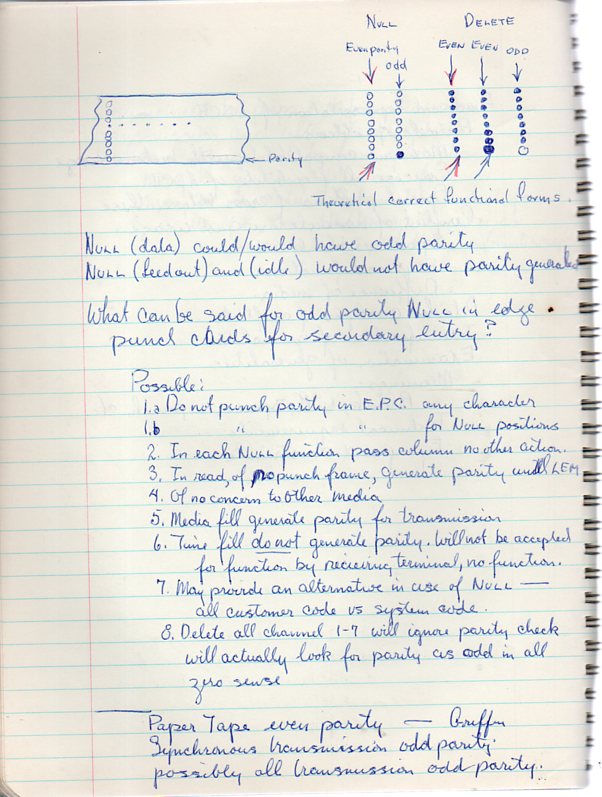 NULL DELETE
Even parity odd EVEN EVEN ODD
← Parity
Theoretical correct functional forms.
NULL (data) could/would have odd parity
NULL (feedout) and (idle) would not have parity generated
What can be said for odd parity NULL in edge
punch cards for secondary entry?
Possible:
1.a Do not punch parity in E.P.C. any character
1.b " " for NULL positions
2. In each NULL function pass column no other action.
3. In read, of no punch frame, generate parity until LEM
4. Of no concern to other media
5. Media fill generate parity for transmission
6. Time fill do not generate parity. Will not be accepted
for function by receiving terminal, no function.
7. May provide an alternative in use of NULL —
all customer code vs system code.
8. Delete all channel 1-7 will ignore parity check
will actually look for parity as odd in all
zero sense
Paper Tape even parity — Griffin
Synchronous transmission odd parity
possibly all transmission odd parity.